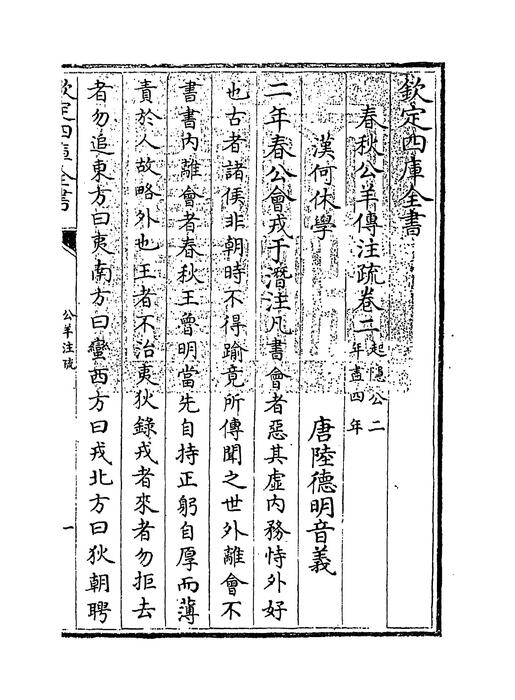 欽定四庫全書
春秋公羊傳注疏卷二 起隱公二年盡四年
漢何休學　唐陸德明音義
二年春公會戎于潛注凡書會者惡其虛内務恃外好
也古者諸侯非朝時不得踰竟所傳聞之世外離會不
書書内離會者春秋王魯明當先自持正躬自厚而薄
責於人故略外也王者不治夷狄錄戎者來者勿拒去
者勿追東方曰夷南方曰蠻西方曰戎北方曰狄朝聘
欽定四庫全書
公羊注疏
一